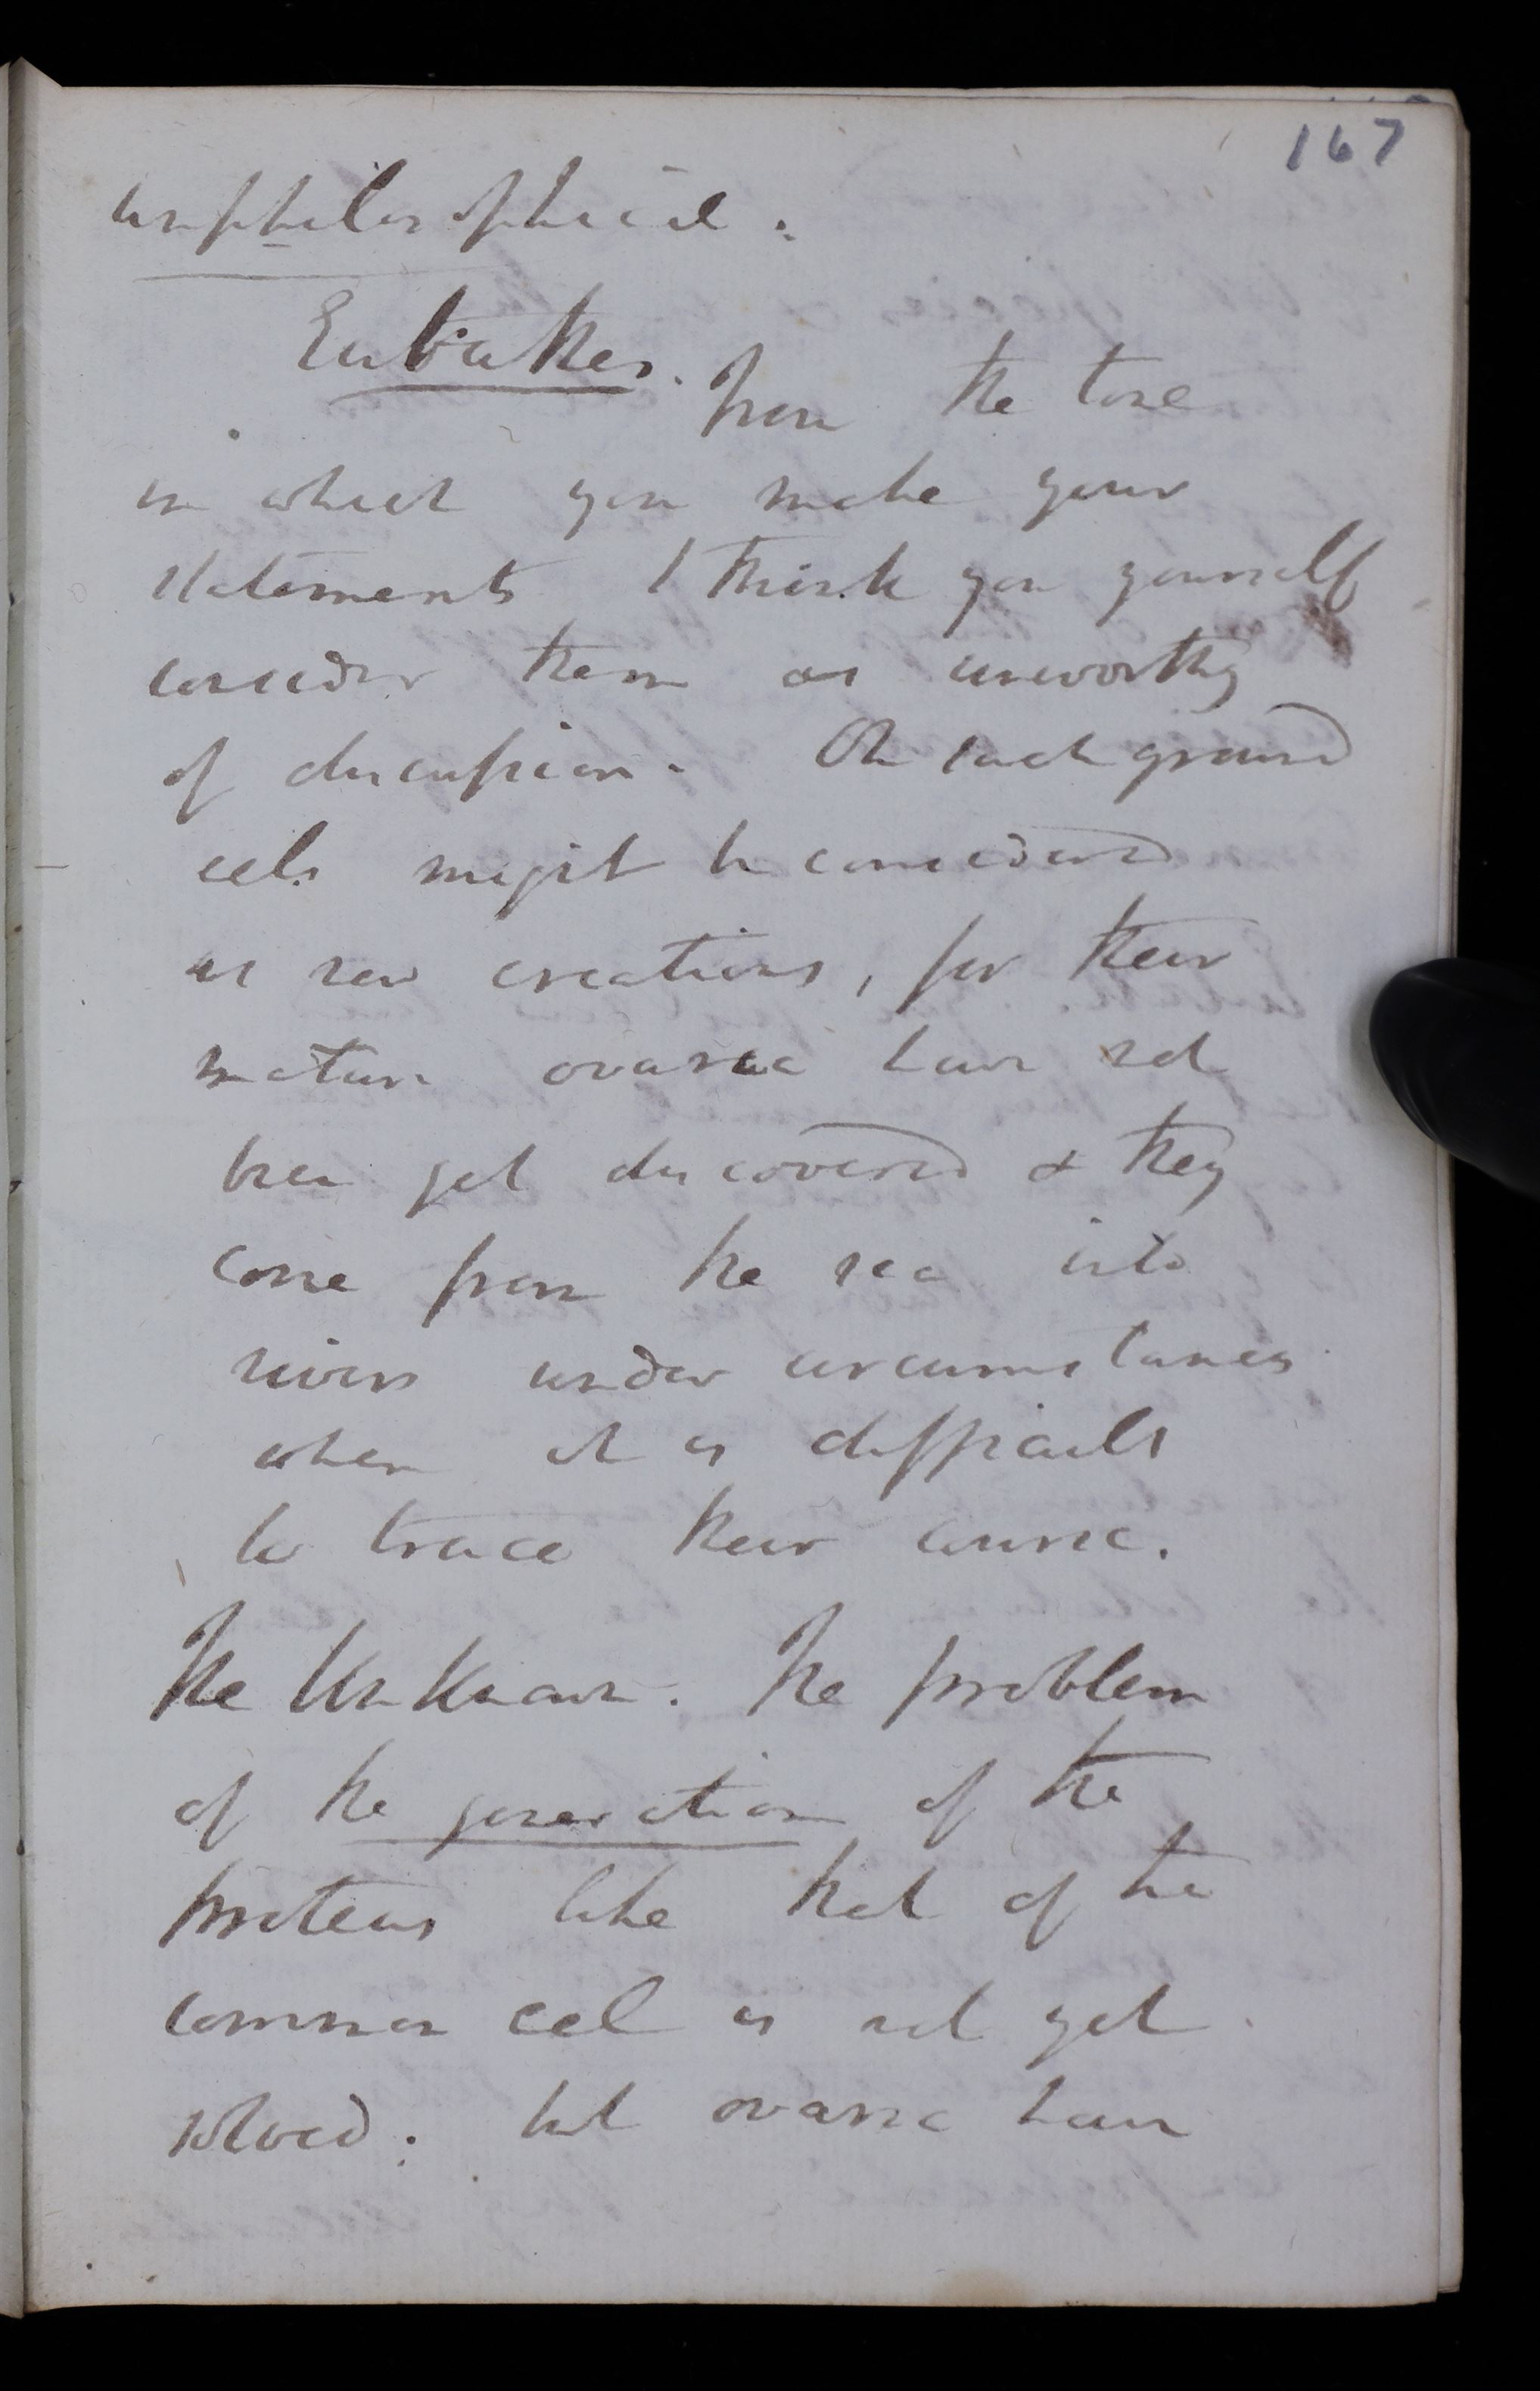 167
unphilosophical.
Eubathes. From the tone
in which you make your
statements I think you yourself
consider them as unworthy
of discussion. On such ground
eels might be considered
as new creations, for their
mature ovaria have not
been yet discovered & they
come from the sea into
rivers under circumstances
when it is difficult
to trace their course.
The Unknown. The problem
of the generation of the
proteus like that of the
common eel is not yet
solved: but ovaria have